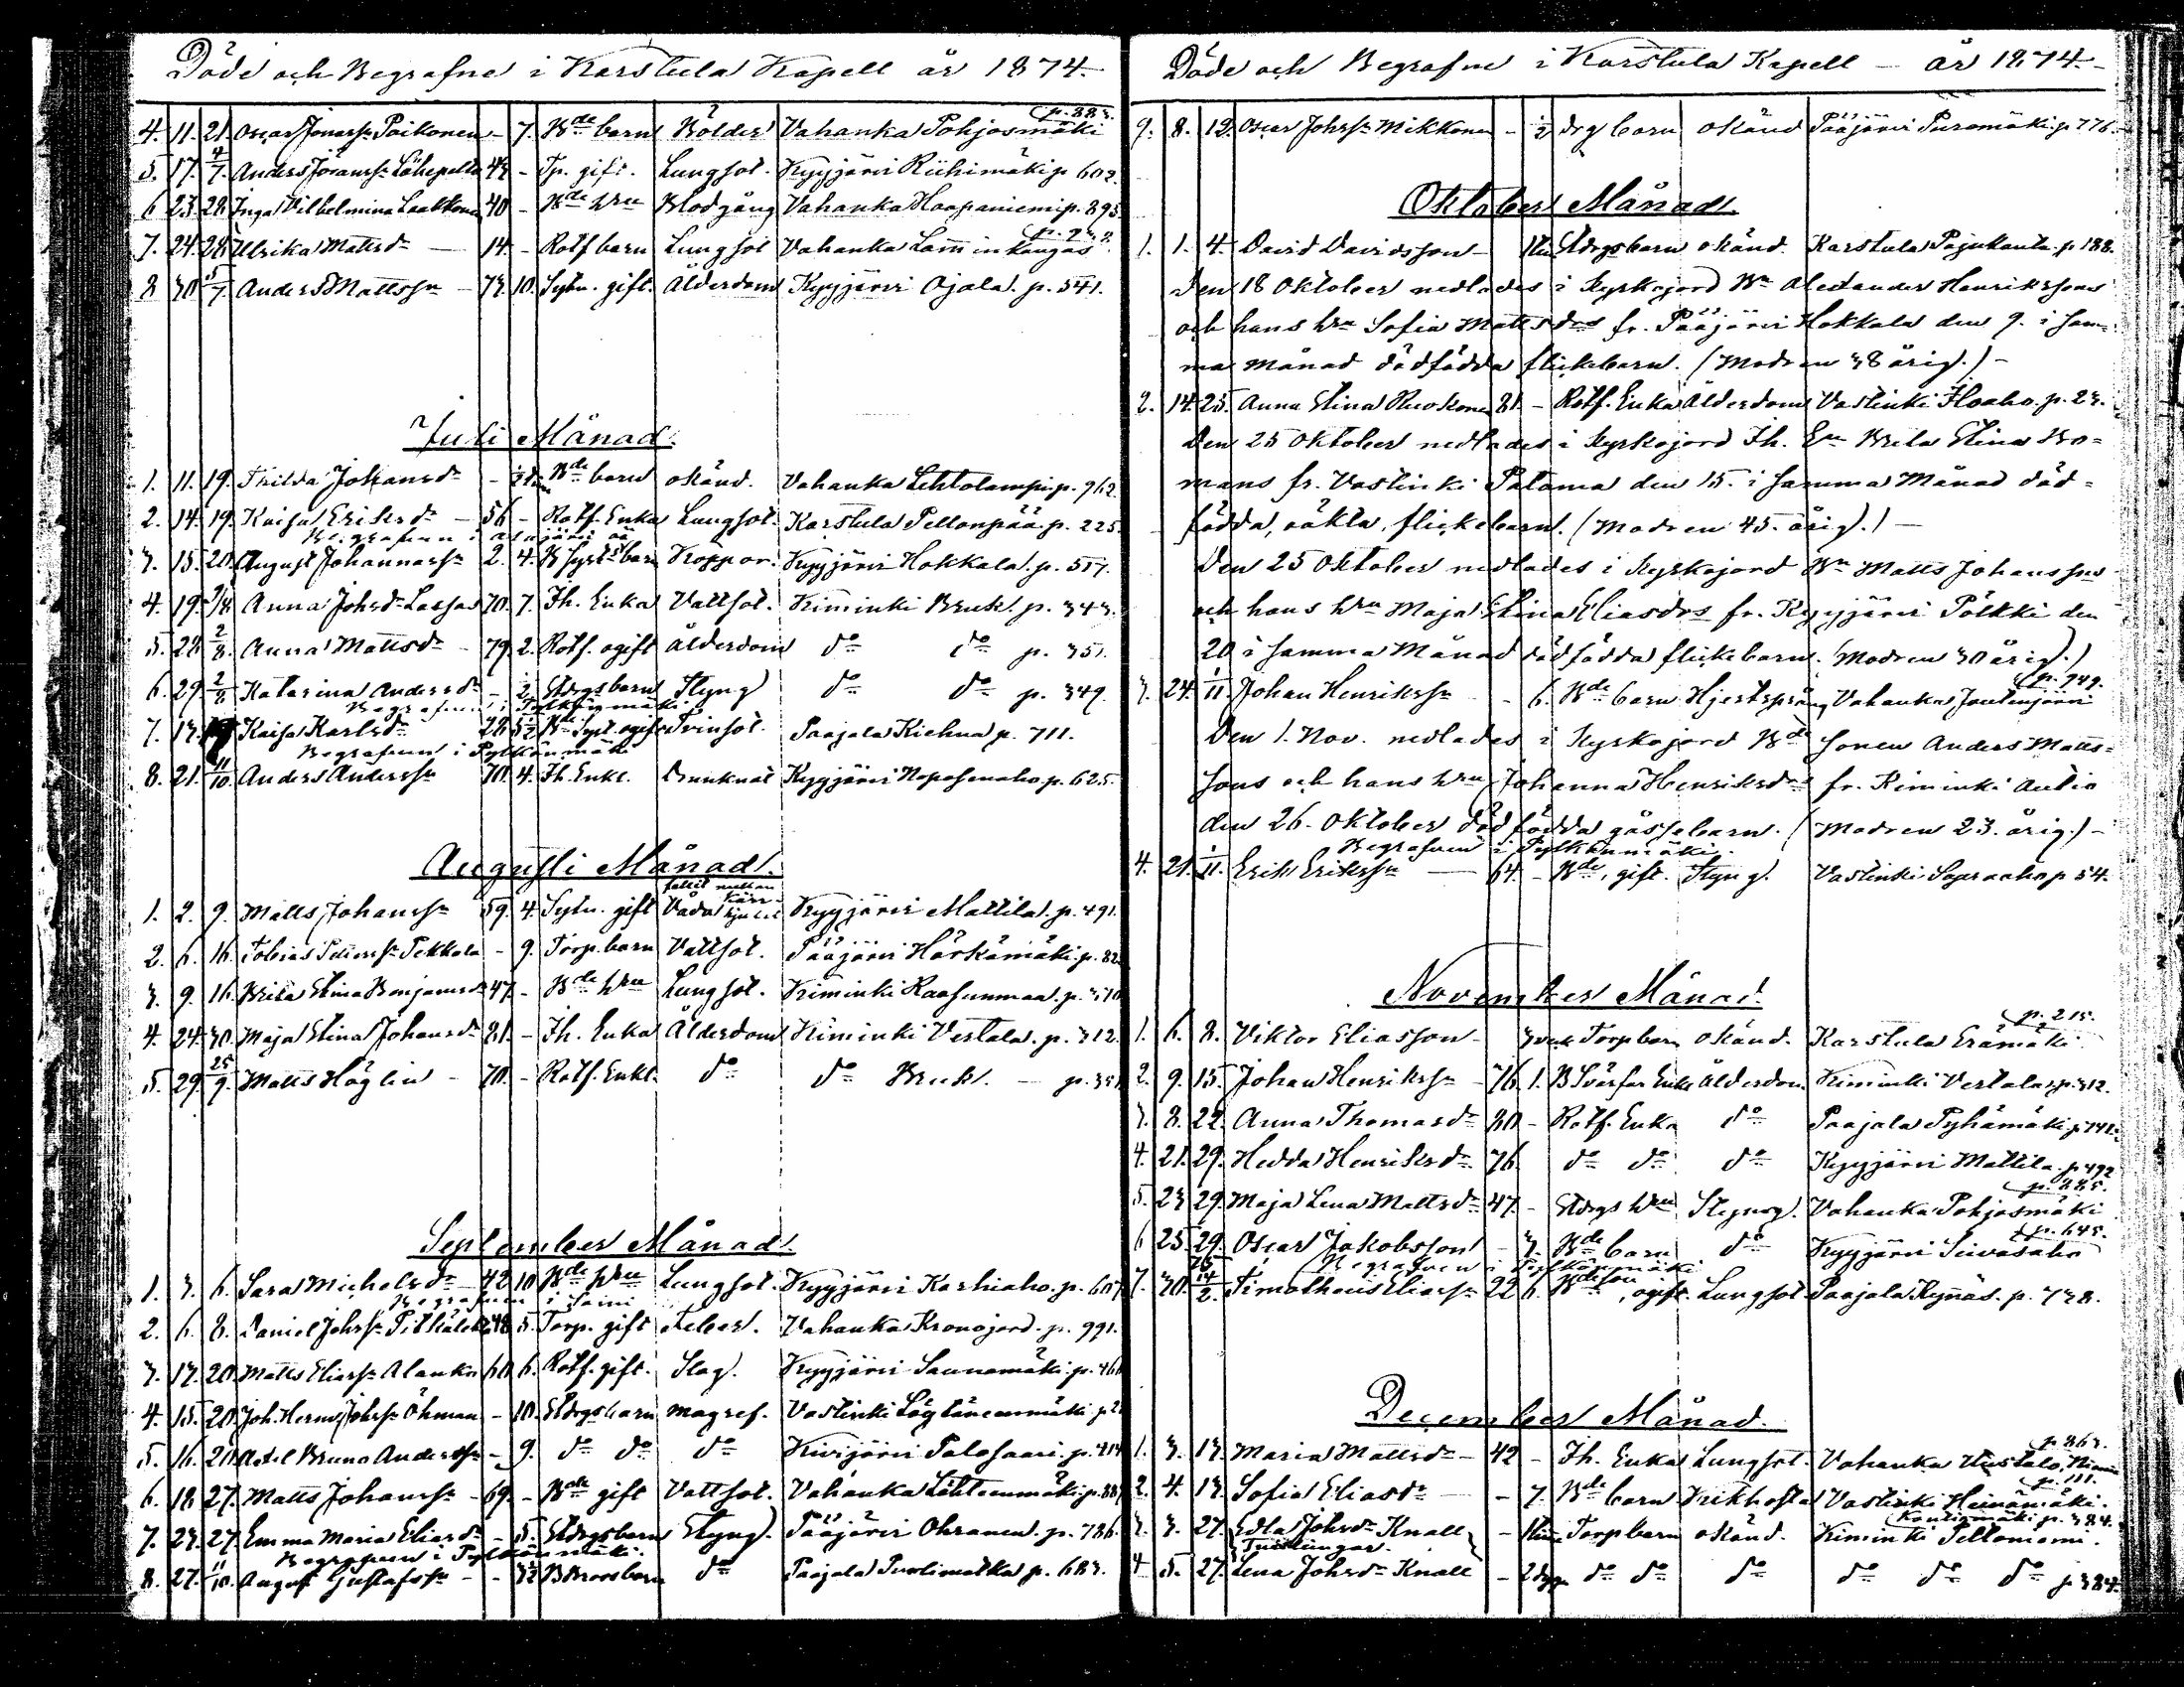 Döde och Begrafne i Karstula Kapell år 1874.
p. 883.
4. 11. 21. Oscar Jonass. Poikonen - 7. Bde barn Bölder Vahanka Pohjosmäki
5. 17. 4/7. Anders Jöranss. 43 - Tp. gift. Lungsot. Kyyjärvi Riihimäki p 602.
6 23 28 Inga Vilhelmina Laakkonen 40 - Bde hru Blodgång Vahanka Haapaniemi p. 895
7. 24. 28 Ulrika Mattsdr 14. - Rotf barn Lungsot Vahanka Laminkangas
8 30 5/7 Anders Mattsson - 73. 10. Sytn. gift. Ålderdom Kyyjärvi Ojala. p. 541.
Juli Månad.
1. 11. 19. Frilda Johansdr - Bde barn okänd. Vahanka Lehtolampi p. 962
2. 14. 19. Kaisa Eriksdr - 56 - Rotf. Enka Lungsot. Karstula Peltonpää p. 225
Begrafven i
3. 15. 20. August Johannass. 2. 4. barn Koppor. Kyyjärvi Hokkala. p. 517.
4. 19. 2/8. Anna Johsdr Lassas 70. 7. Ih. Enka Vattsot. Kiminki Bruk. p. 343.
5. 28 2/8. Anna Mattsdr - 79. 2. Rotf. ogift ålderdom do do p. 351.
6. 29. 2/8 Katarina Andersdr - 2. Stdrgsbarn Styng do do p. 349.
Begrafven i Pylkönmäki
7. 13. 19 Kaisa Karlsdr 28 5 ogift Tvinsot. Paajala Kiehna p. 711.
Begrafven i Pylkönmäki
8. 21. 11/10. Anders Anderss. 70. 4. Ih. Enkl. Drunknat Kyyjärvi Noposenaho. p. 625.
Augusti Månad.
1. 2. 9. Matts Johanss. 59. 4. Sytn. gift Våda Kyyjärvi Mattila. p. 491.
2. 6. 16. Tobias Pekkala - 9. Torp. barn Vattsot. Pääjärvi Härkämäki. p. 82
3. 9. 16. Brita Stina Benjamsdr 47. - Bde hru Lungsot. Kiminki Raasunmaa. p. 370
4. 24. 30. Maja Stina Johansdr 81. - Ih. Enka Ålderdom Kiminki Vestala. p. 312.
5. 29. 25/9. Matts Höglin - 70. - Rotf. Enkl. do do Bruk. - p. 351
September Månad.
1. 3. 6. Sara Michelsdr - 42 10 Bde hru Lungsot. Kyyjärvi Karhiaho. p. 607
Begrafven i Saini
2. 6. 8. Daniel Johss. 48 5. Torp. gift Feber. Vahanka Kronojord. p. 991.
3. 17. 20. Matts Eliass. Alanko 60 6. Rotf. gift. Slag. Kyyjärvi Saunamäki. p. 466
4. 15. 20. Joh. Herm. Johss. Öhman - 10. Stdrgsbarn magref. Vastinki
5. 16. 20 Axel Bruno Anderss. - 9. do do do Kyyjärvi Palosaari. p. 414
6. 18 27. Matts Johanss. - 69. - Bde gift Vattsot. Vahanka Lehtomäki p. 887
7. 23. 27. Emma Maria Eliasdr - 5. Stdrgsbarn Styng. Pääjärvi Ohranen. p. 786.
Begrafven i Pylkönmäki.
8. 27. 11/10. August Gustafss. - - 3½ Bbrorsbarn do Paajala Puolimatka p. 683.
Döde och Begrafne i Karstula Kapell - år 1874.
9. 8. 12. Oscar Johss. Mikkonen - ½ drg barn okänd Pääjärvi Puromäki p 776.
Oktober Månad.
1. 1. 4. David Davidsson - Stdrgsbarn okänd. Karstula Pajukanta p. 188.
Den 18 Oktober nedlades i kyrkojord Bn Alexander Henrikssons
och hans hru Sofia Mattsdrs fr. Pääjärvi Hokkala den 9. i sam-
ma månad dödfödda flickebarn. (Modren 38 årig.) -
2. 14. 25. Anna Stina Ruokonen 81. - Rotf. Enka Ålderdom Vastinki Hoaho. p. 23.
Den 25 Oktober nedlades i kyrkojord Ih. Brita Stina Bo-
mans fr. Vastinki Palama den 15. i samma Månad död-
födda, oäkta, flickebarn. (Modren 45. årig.) -
Den 25 Oktober nedlades i kyrkojord Bn Matts Johanssons
och hans hru Maja Stina Eliasdrs fr. Kyyjärvi Pölkki den
20 i samma Månad dödfödda flickebarn. (Modren 30 årig.)
p. 949.
3. 24. 1/11. Johan Henrikss. - 6. Bde barn Hjertsprång Vahanka Joutenjärvi
Den 1. Nov. nedlades i kyrkojord Bde sonen Anders Matts-
sons och hans hru Johanna Henriksdrs fr. Kiminki Autio
den 26. Oktober dödfödda gossebarn. (Modren 23. årig.) -
Begrafven i Pylkönmäki.
4. 21. 1/11. Erik Erikss. - 64. - Bde, gift. Styng. Vastinki p 54.
November Månad.
p. 215.
1. 6. 8. Viktor Eliasson - Torpbarn okänd. Karstula Erämäki
2. 9. 15. Johan Henrikss. - 76. 1. B Svärfar Enkl Ålderdom. Kiminki Vestala p. 312.
3. 8. 22. Anna Thomasdr 80 - Rotf. Enka do Paajala Pyhämäki p 741.
4. 21. 29. Hedda Henriksdr 76. do do do Kyyjärvi Mattila p 492
p. 885.
5. 23 29. Maja Lena Mattsdr 47. - Stdrgs hru Styng. Vahanka Pohjosmäki
p. 645.
6 25. 29. Oscar Jakobsson - 3. Bde barn do Kyyjärvi Seivasaho
Begrafven i Pylkönmäki
7. 30. 14/2. Timotheus Eliass. 22 6. Bde son, ogift. Lungsot Paajala Kynäs. p. 738.
December Månad.
p 863.
1. 3. 13. Maria Mattsdr - 42 - Ih. Enka Lungsot. Vahanka Uustalo,
p. 111.
2. 4. 13. Sofia Eliasdr - 7. Bde barn Kikhosta Vastinki Heinämäki.
p. 384.
3. 3. 27. Edla Johsdr Knall - Torpbarn okänd. Kiminki Peltoniemi.
Tvillingar.
4 5. 27. Lena Johsdr Knall - 2 dgr do do do do do do p 384.